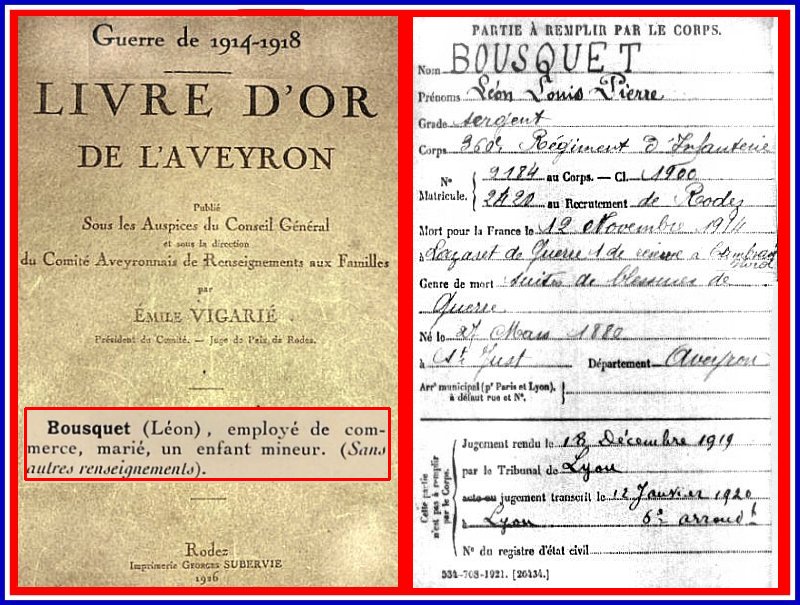 Guerre de 1914-1918
LIVRE D'OR
DE L'AVEYRON
Publié
Sous les Auspices du Conseil Général
et sous la direction
du Comité Aveyronnais de Renseignements aux Familles
par
ÉMILE VIGARIÉ
Président du Comité. — Juge de Paix de Rodez.
Bousquet (Léon), employé de com-
merce, marié, un enfant mineur. (Sans
autres renseignements).
Rodez
Imprimerie GEORGES SUBERVIE
1926
PARTIE À REMPLIR PAR LE CORPS.
Nom BOUSQUET
Prénoms Léon Louis Pierre
Grade sergent
Corps 360e Régiment d'Infanterie
N° Matricule. { 2184 au Corps. — Cl. 1900
2420 au Recrutement de Rodez
Mort pour la France le 12 Novembre 1914
à Lazaret de Guerre 1 de réserve à Cambrai Nord
Genre de mort suites de blessures de
Guerre
Né le 27 Mars 1880
à St Just Département Aveyron
Arrt municipal (pr Paris et Lyon),
à défaut rue et N°.
Cette partie n'est pas à remplir par le Corps.
Jugement rendu le 18 Décembre 1919
par le Tribunal de Lyon
acte ou jugement transcrit le 12 Janvier 1920
à Lyon 6e arrondt
N° du registre d'état civil
534-708-1921. [26434.]